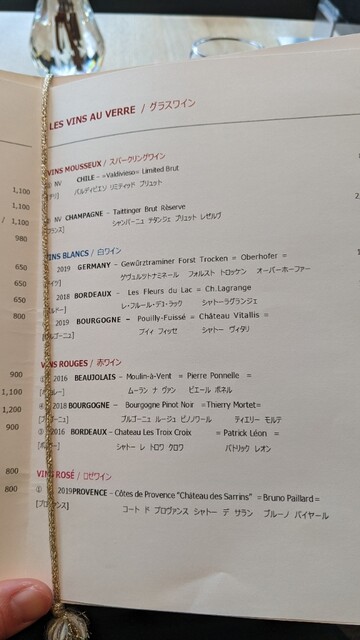 LES VINS AU VERRE / グラスワイン
VINS MOUSSEUX / スパークリングワイン
NV CHILE – =Valdivieso= Limited Brut
バルディビエソ リミテッド ブリュット
NV CHAMPAGNE – Taittinger Brut Réserve
シャンパーニュ テタンジェ ブリュット レゼルヴ
VINS BLANCS / 白ワイン
2019 GERMANY – Gewürztraminer Forst Trocken = Oberhofer =
ゲヴュルツトナミネール フォルスト トロッケン オーバーホーファー
2018 BORDEAUX – Les Fleurs du Lac = Ch.Lagrange
レ・フルール・デュ・ラック シャトーラグランジェ
2019 BOURGOGNE – Pouilly-Fuissé = Château Vitallis =
プイィ フィッセ シャトー ヴィタリ
VINS ROUGES / 赤ワイン
① 2016 BEAUJOLAIS – Moulin-à-Vent = Pierre Ponnelle =
ムーラン ナ ヴァン ピエール ポネル
④ 2018 BOURGOGNE – Bourgogne Pinot Noir =Thierry Mortet=
ブルゴーニュ ルージュ ピノノワール ティエリー モルテ
2016 BORDEAUX – Chateau Les Troix Croix = Patrick Léon =
シャトー レ トロワ クロワ パトリック レオン
VINS ROSÉ / ロゼワイン
① 2019PROVENCE – Côtes de Provence "Château des Sarrins" =Bruno Paillard=
コート ド プロヴァンス シャトー デ サラン ブルーノ パイヤール
1,100
1,100
/ 1,100
980
650
650
800
900
1,100
1,200
900
800
800